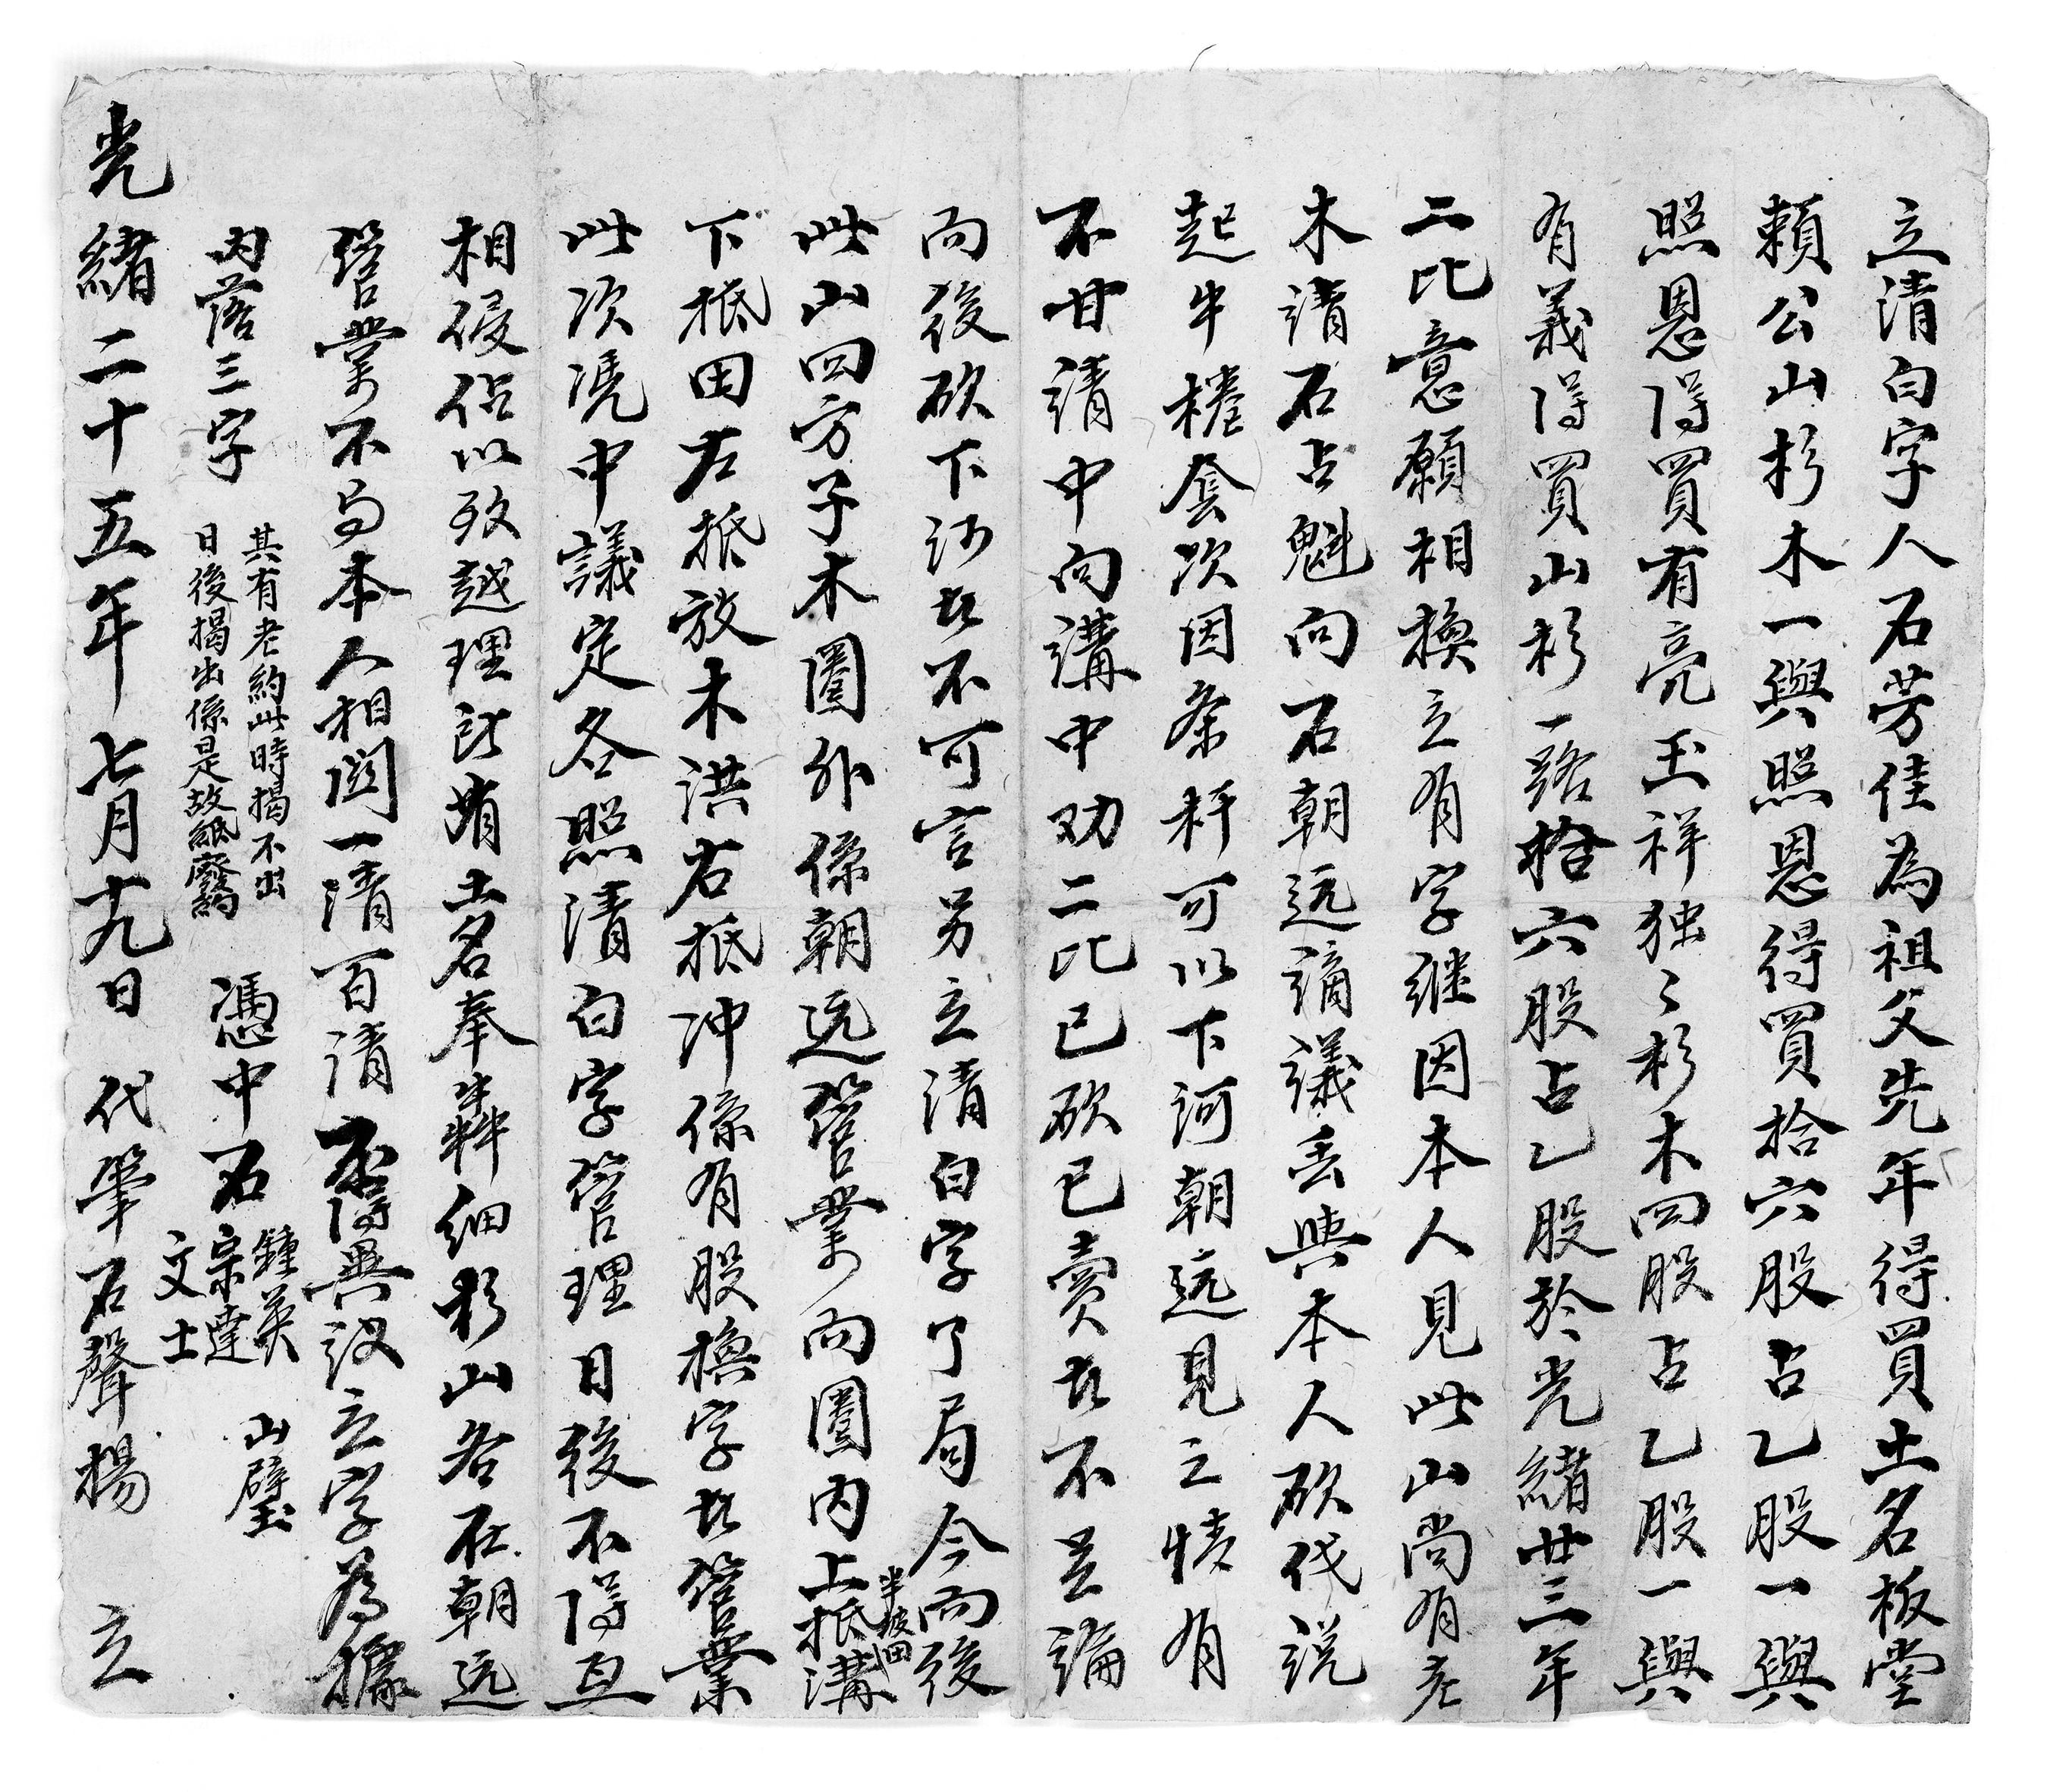 立清白字人石芳佳為祖父先年得買土名板堂
賴公山杉木一與照恩得買拾六股占乙股一與
照恩得買有亮玉祥独〻杉木四股占乙股一與
有義得買山杉一路拾六股占乙股於光緒廿三年
二比意願相換立有字継因本人見此山尚有老
木請石占魁向石朝远議丢與本人砍伐説
起牛棬套次因条杆可以下河朝远見之情有
不甘請中向講中劝二比已砍已賣者不並論
而後砍下河者不可言另立清白字了局今而後
此山四方子木圈外係朝远管業向圈内上抵溝
半坡田
下抵田左抵放木洪右抵冲係有股換字者管業
此次憑中議定各照清白字管理日後不得互
相侵佔以致越理所有土名奉細杉山各在朝远
管業不与本人相関一清百清不得異議立字為據
内落三字
其有老約此時揭不出
日後揭出係是故紙廢約
憑中石
鍾英
宗達
文士
山璧
光緒二十五年七月十九日 代筆石聲揚 立